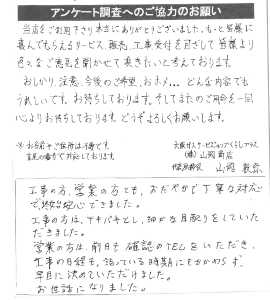 アンケート調査へのご協力のお願い
当店をご利用下さり本当にありがとうございました。もっと皆様に
喜んでもらえるサービス、販売、工事受付を目ざして皆様より
色々なご意見を聞かせて頂きたいと考えております。
おしかり、注意、今後のご希望、おほめ… どんな内容でも
うれしいです。お待ちしております。そしてまたのご用命を一同
心よりお待ちしております。どうぞよろしくお願いします。
※お名前やご住所は不要です
(株)山岡商店
山岡
工事の方、営業の方とも、おだやかで丁寧な対応
で安心できました。
工事の方は、テキパキとし、細かな目配りをしていた
だきました。
営業の方は、前日も確認のTELをいただき、
工事の日程も、混んでいる時期にもかかわらず、
早目に決めていただけました。
お世話になりました。